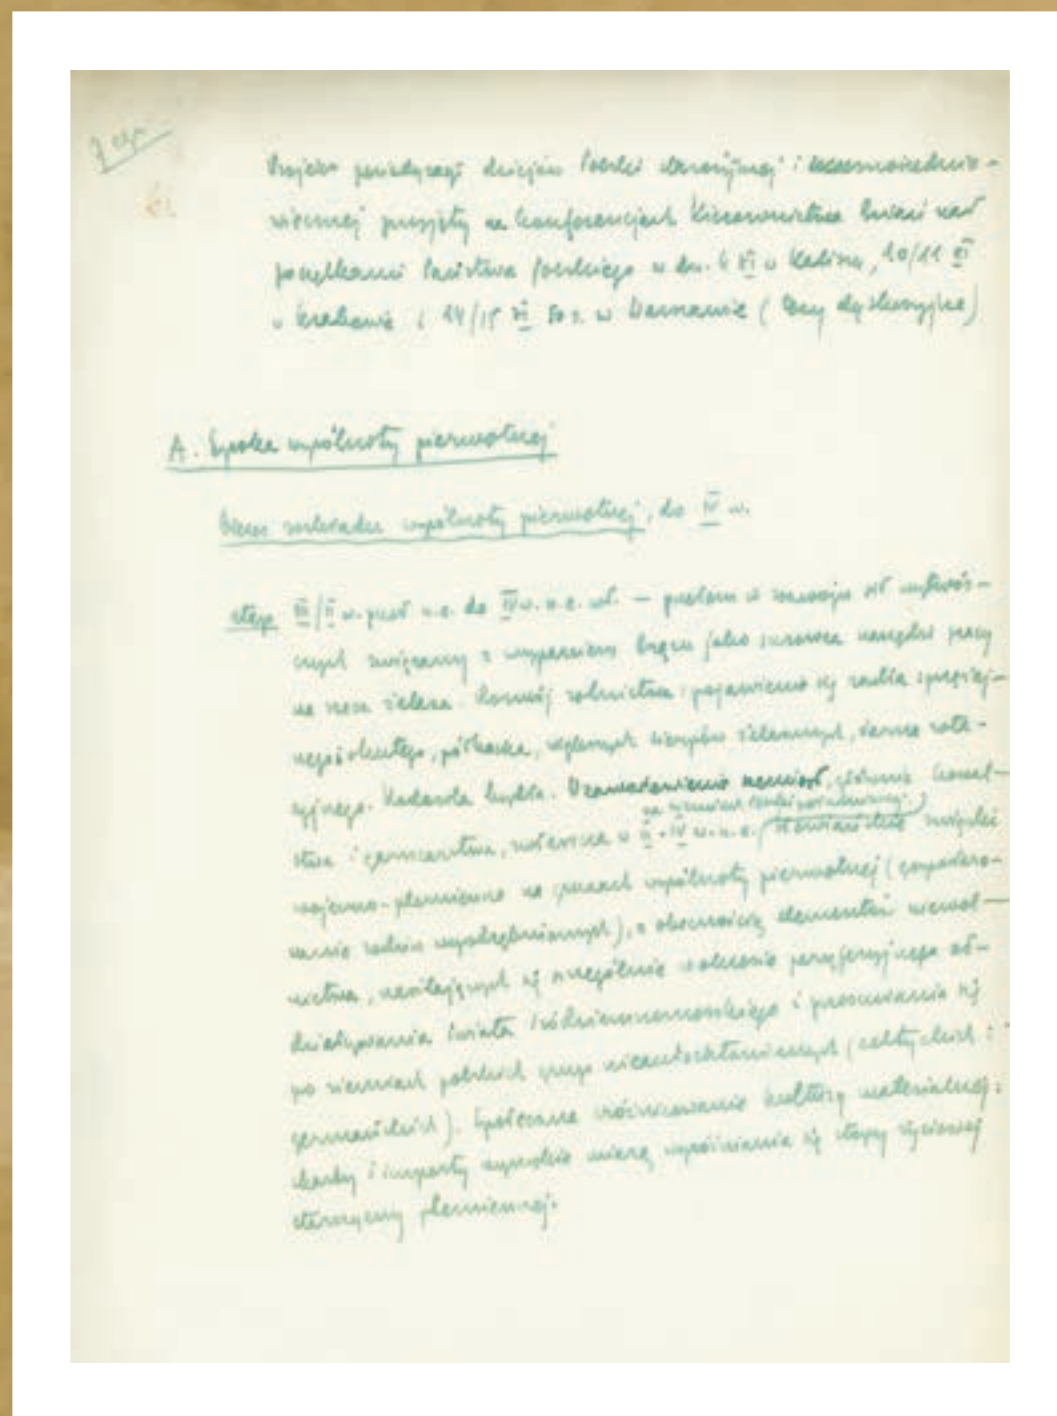 7 egz.
Projekt periodyzacji dziejów Polski starożytnej i wczesnośrednio-
wiecznej przyjęty na konferencjach Kierownictwa Badań nad
początkami Państwa Polskiego w dn. 4 XI w Kaliszu, 10/11 XI
w Krakowie i 14/15 XI 50 r. w Warszawie (tezy dyskusyjne)
A. Epoka wspólnoty pierwotnej
Okres rozkładu wspólnoty pierwotnej, do IV w.
etap III/II w. przed n.e. do IV w. n.e. wł. — przełom w rozwoju sił wytwór-
czych związany z wyparciem brązu jako surowca narzędzi pracy
na rzecz żelaza. Rozwój rolnictwa: pojawienie się radła sprzężaj-
nego okutego, półkoska, żelaznych, żarna rota-
cyjnego. Hodowla bydła. Uzawodowienie rzemiosł, głównie kowal-
stwa i garncarstwa, zwłaszcza w II-IV w. n.e. słowiańskie związki
na ziemiach
wojenno-plemienne na gruzach wspólnoty pierwotnej (gospodaro-
wanie rodzin wyodrębnionych), z obecnością elementów niewol-
nictwa, nasilających się szczególnie w okresie peryferyjnego od-
działywania świata śródziemnomorskiego i przesuwania się
po ziemiach polskich grup nieautochtonicznych (celtyckich i
germańskich). Społeczne zróżnicowanie kultury materialnej:
skarby i importy wyrazicie miarą wyróżniania się stopy życiowej
starszyzny plemiennej.